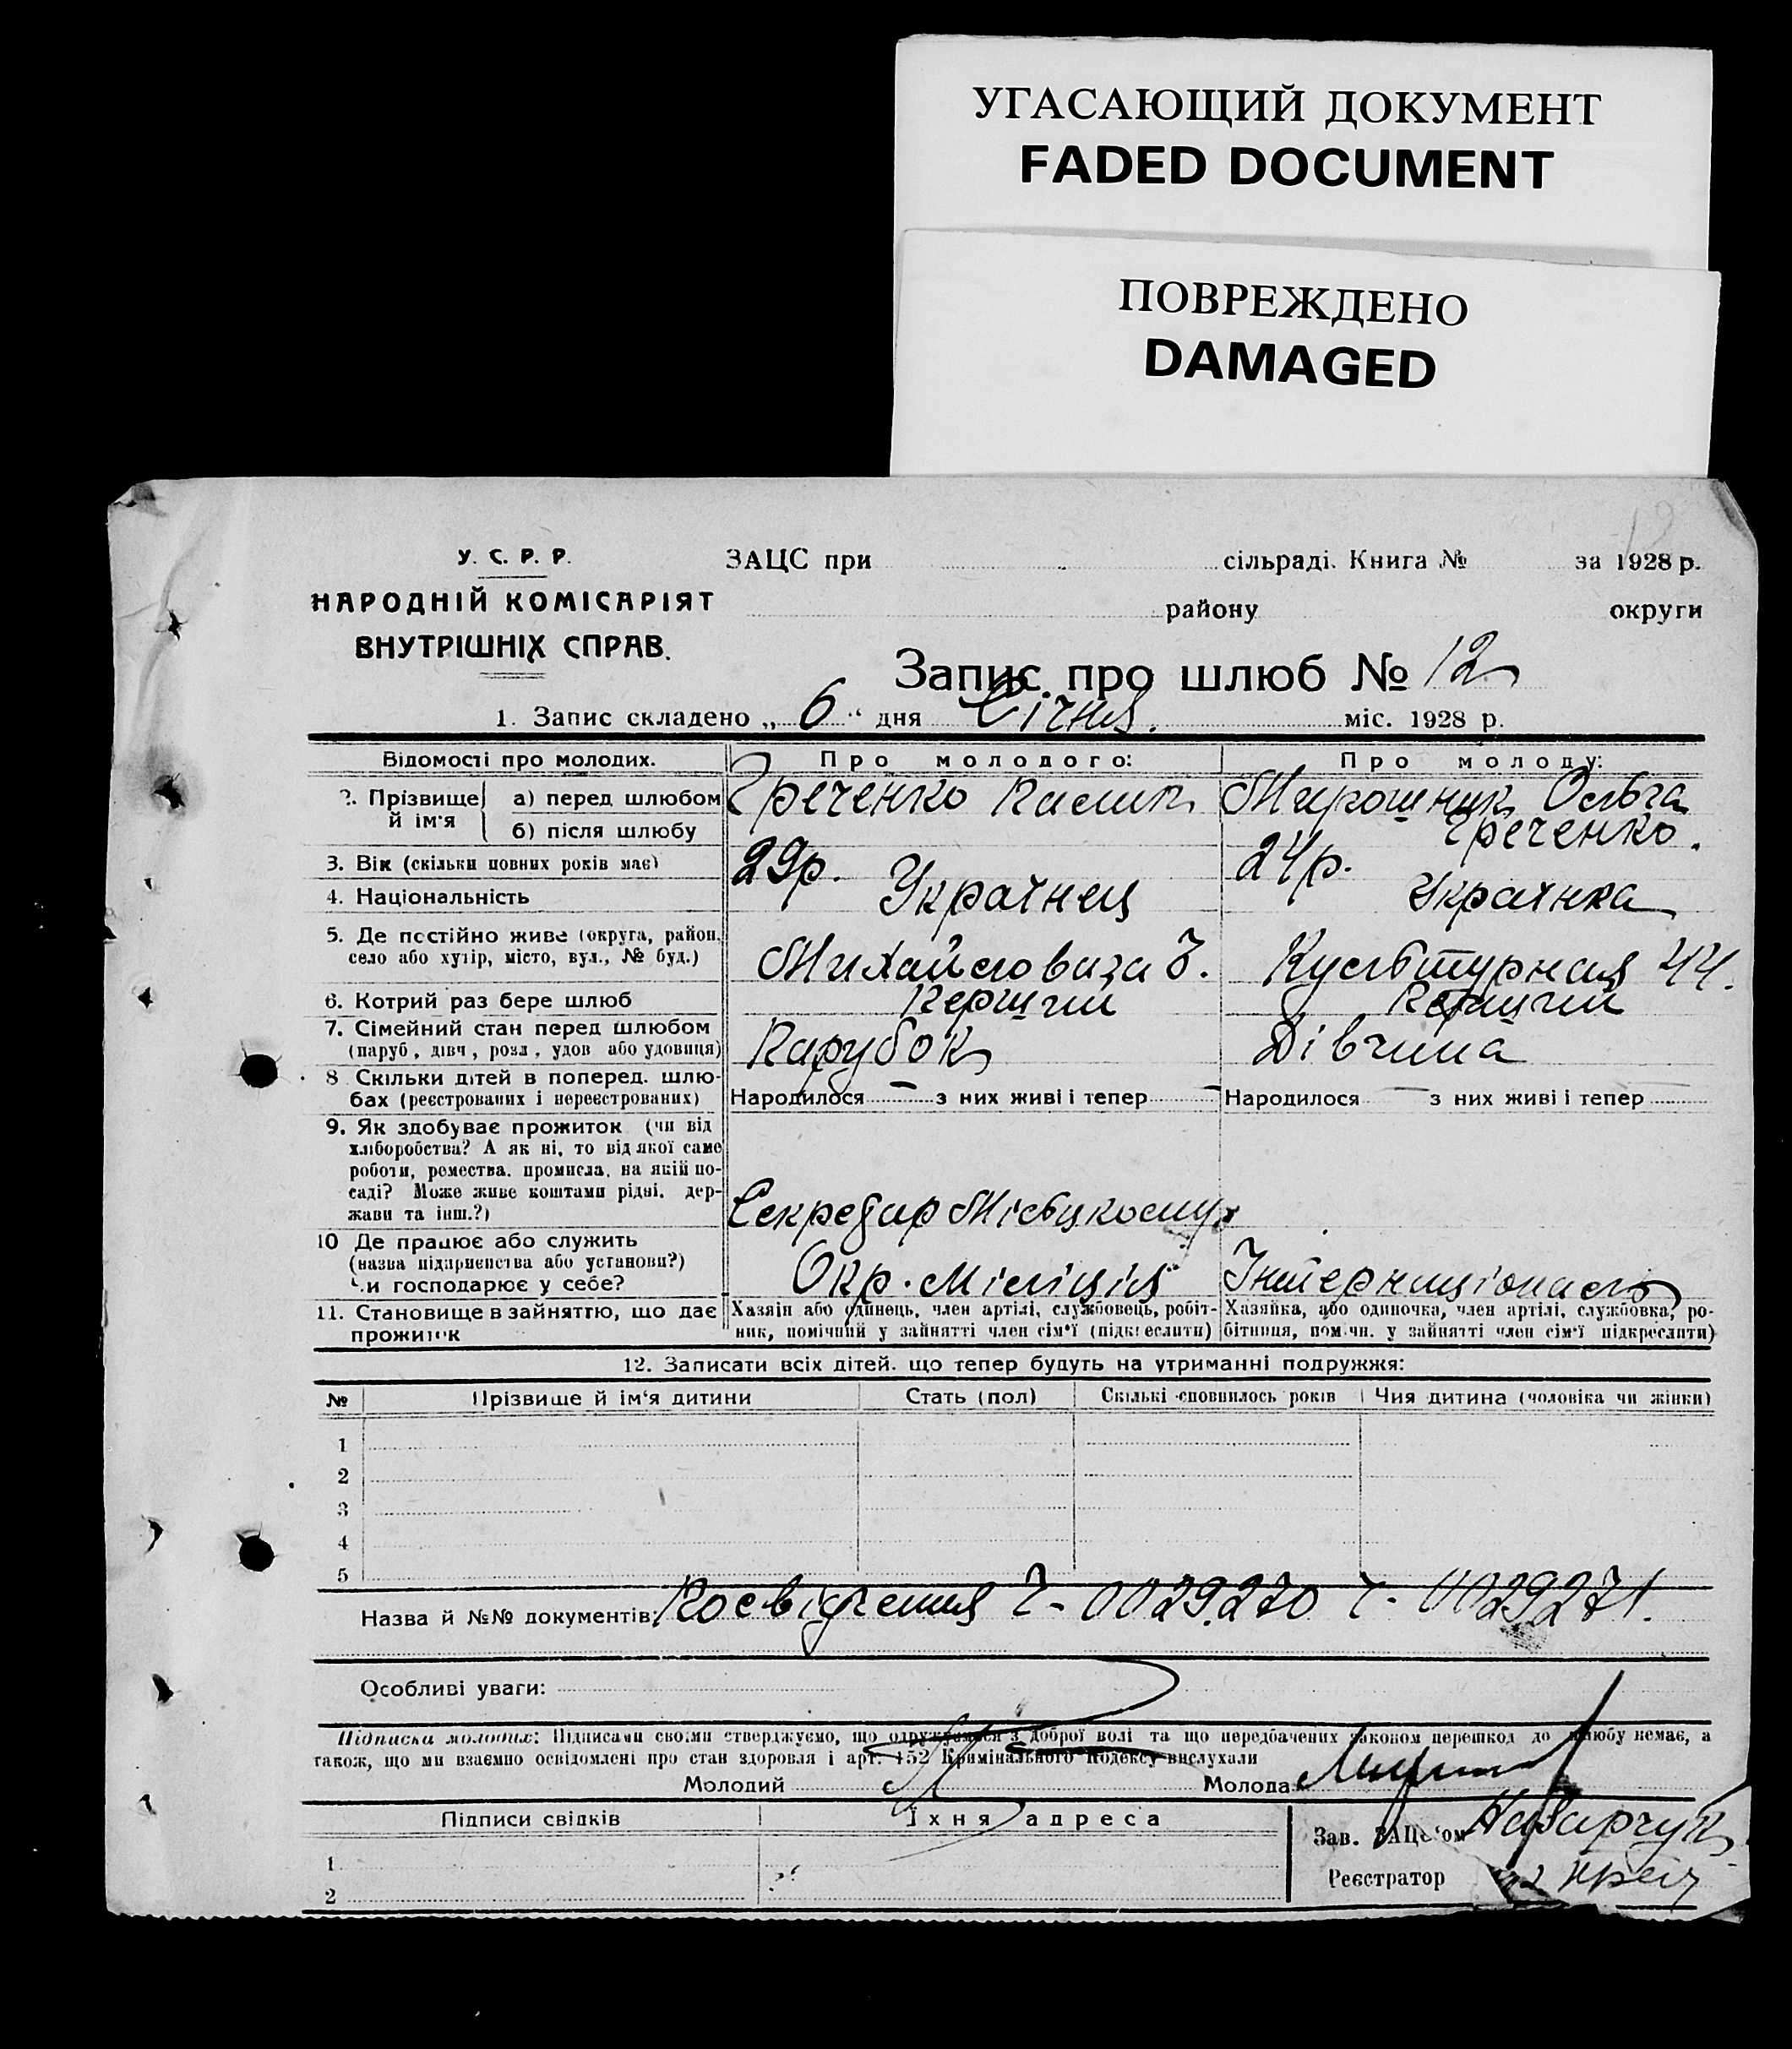 УГАСАЮЩИЙ ДОКУМЕНТ
FADED DOCUMENT
ПОВРЕЖДЕНО
DAMAGED
У. С. Р. Р.
НАРОДНІЙ КОМІСАРІЯТ
ВНУТРІШНІХ СПРАВ.
ЗАЦС при сільраді. Книга № за 1928 р.
району округи
Запис про шлюб № 12
1. Запис складено „ 6 “ дня Січня. міс. 1928 р.
Відомості про молодих. Про молодого: Про молоду:
2. Прізвище й ім'я
а) перед шлюбом Греченко Мирошник Ольга
б) після шлюбу Греченко.
3. Вік (скільки повних років має) 29р. 24р.
4. Національність Українец Українка
5. Де постійно живе (округа, район,
село або хутір, місто, вул., № буд.) Культурная 44.
6. Котрий раз бере шлюб Перший Перший
7. Сімейний стан перед шлюбом
(паруб., дівч., розл., удов. або удовиця) Парубок Дівчина
8. Скільки дітей в поперед. шлю-
бах (реєстрованих і нереєстрованих) Народилося — з них живі і тепер — Народилося — з них живі і тепер
9. Як здобуває прожиток (чи від
хліборобства? А як ні, то від якої саме
роботи, ремества, промисла, на якій по-
саді? Може живе коштами рідні, дер-
жави та інш.?) Секретар
10 Де працює або служить
(назва підприємства або установи?)
Чи господарює у себе? Окр. Міліція Інтернаціональ
11. Становище в зайняттю, що дає
прожиток
Хазяїн або одинець, член артілі, службовець, робіт-
ник, помічний у зайнятті член сім'ї (підкреслити)
Хазяйка, або одиночка, член артілі, службовка, ро-
бітниця, помічн. у зайнятті член сім'ї підкреслити)
12. Записати всіх дітей, що тепер будуть на утриманні подружжя:
№ Прізвище й ім'я дитини Стать (пол) Скількі сповнилось років Чия дитина (чоловіка чи жінки)
1
2
3
4
5
Назва й №№ документів: Посвідчення Ч- 0029270 Ч- 0029271.
Особливі уваги:
Підписка молодих: Підписами своїми стверджуємо, що одружуємося з доброї волі та що передбачених законом перешкод до шлюбу немає, а
також, що ми взаємно освідомлені про стан здоровля і арт. 152 Кримінального Кодексу вислухали
Молодий Молода
Підписи свідків Їхня адреса
Зав. ЗАЦС'ом
1
Реєстратор
2